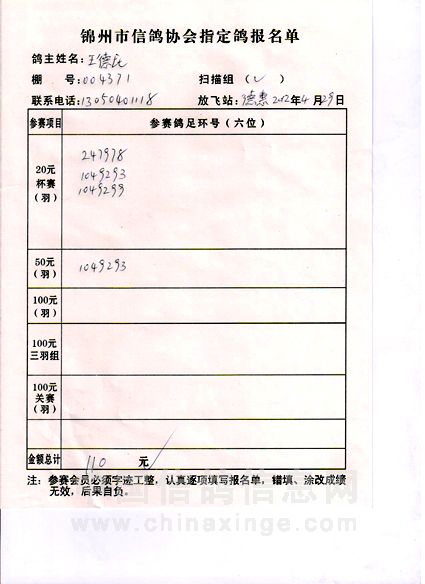 锦州市信鸽协会指定鸽报名单
鸽主姓名：王德民
棚 号：004371 扫描组（✓）
联系电话：13050401118 放飞站：德惠 2012年4月29日
参赛项目 参赛鸽足环号（六位）
20元
杯赛
（羽）
247978
1049293
1049299
50元
（羽）
1049293
100元
（羽）
100元
三羽组
100元
关赛
（羽）
金额总计 110 元
注：参赛会员必须字迹工整，认真逐项填写报名单，错填、涂改成绩
无效，后果自负。
中国信鸽信息网
www.chinaxinge.com